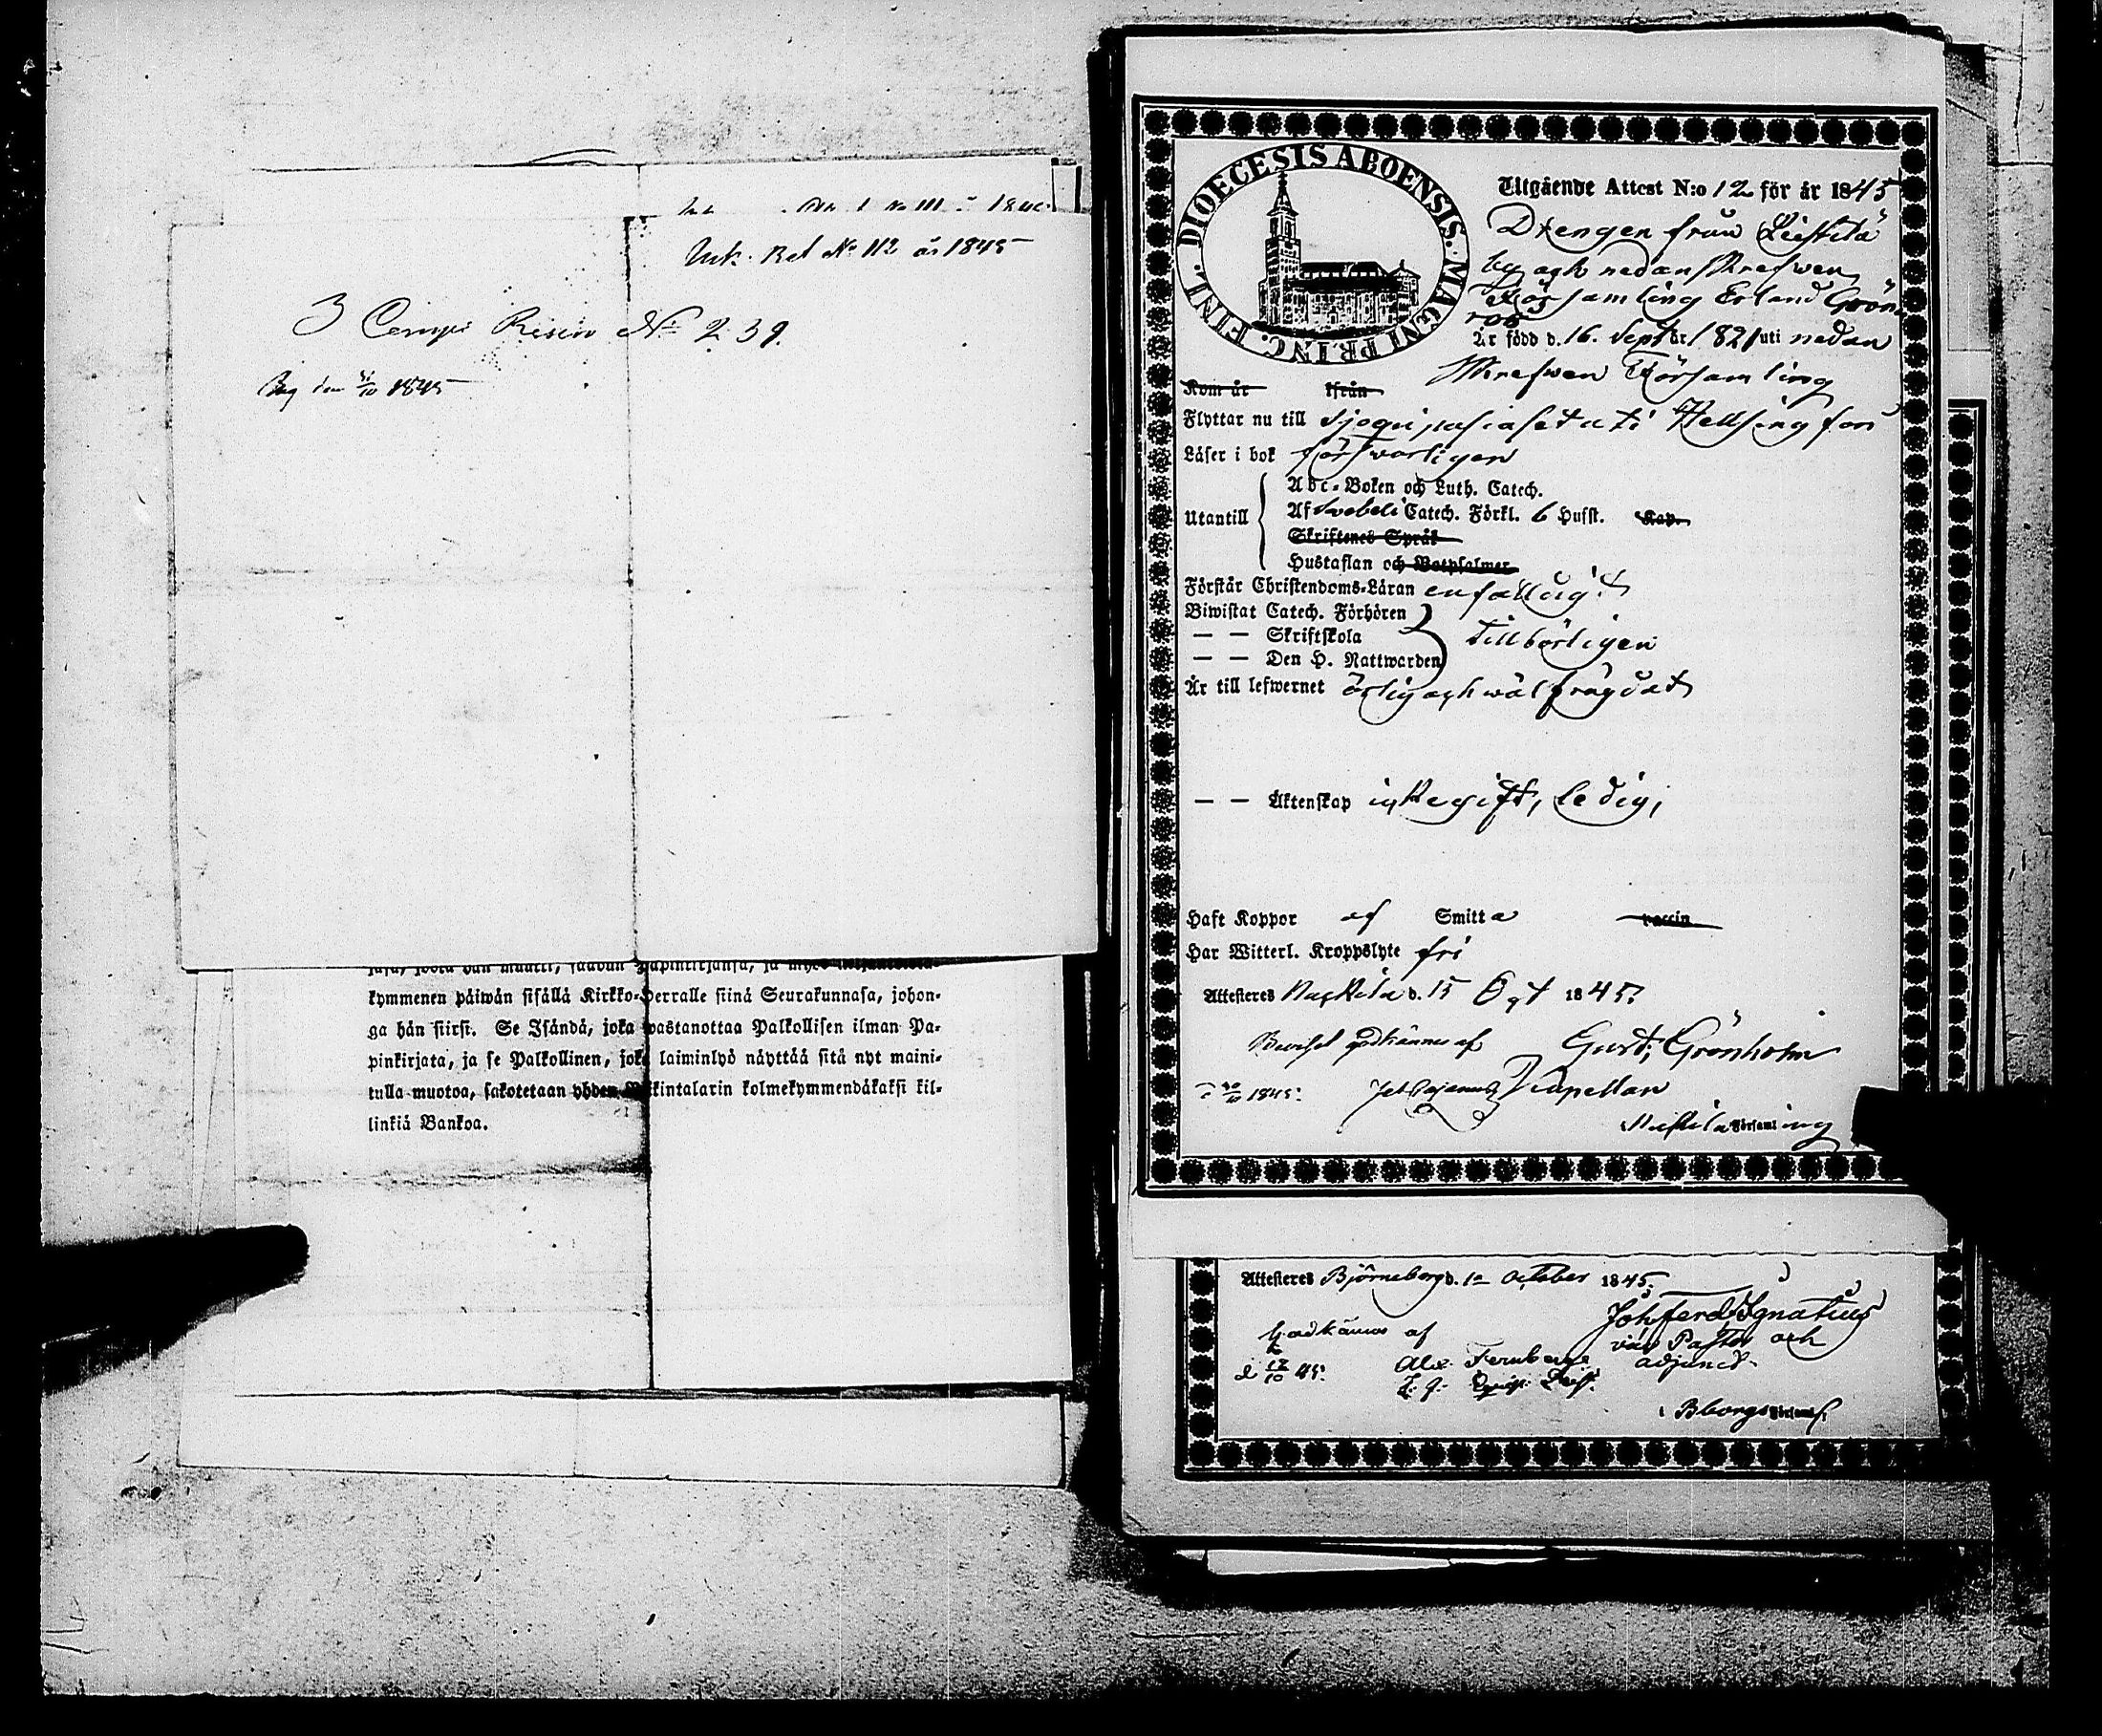 Ink. Bet No 112 år 1845
3 Comp. No 239.
Beg den 31/10 1845
kymmenen päiwän sisällä Kirkko-Herralle siinä Seurakunnasa, johon-
ga hän siirsi. Se Isändä, joka wastanottaa Palkollisen ilman Pa-
pinkirjata, ja se Palkollinen, joka laiminlyö näyttää sitä nyt maini-
tulla muotoa, sakotetaan yhden Pankintalarin kolmekymmendäkaksi kil-
linkiä Bankoa.
DIOECESIS ABOENSIS. MAGNI PRINC. FINL.
Utgående Attest N:o 12 för år 1845
Drengen från
by och nedanskrefwen
Församling Erland Grön
roos
Är född d. 16. Sept år 1821 uti nedan
skrefwen Församling
Kom år ifrån
Flyttar nu till Helsingfors
Läser i bok försvarligen
Abc-Boken och Luth. Catech.
Utantill Af Swebeli Catech. Förkl. 6 Hufst. Kap.
Skriftenes Språk
Hustaflan och Botpsalmer
Förstår Christendoms-Läran enfalldigt
Biwistat Catech. Förhören
— — Skriftskola tillbörligen
— — Den H. Nattwarden
Är till lefwernet ärlig och wälfrägdat
— — Äktenskap ledig,
Haft Koppor af Smitta vaccin
Har Witterl. Kroppslyte fri
Attesteres Nakkila d. 15 Oct 1845.
Beviset godkännes af Gust. Grönholm
d 20/10 1845. Capellan
i Nakkila Församling
Attesteres Björneborg d. 12 October 1845.
Joh Ferd Ignatius
Godkännes af vice Pastor och
d 12/10 45. Alex. Fernberg adjunct.
i Bborgs Församl.